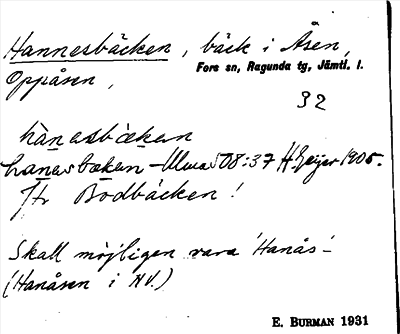 Hannesbäcken, bäck i Åsen,
Fors sn, Ragunda tg, Jämtl. l.
Oppåsen,
32
hànasbækan
hanasbækan – Ulma 508:37 H. Geijer 1905.
Jfr Bodbäcken!
Skall möjligen vara 'Hanås'-
(Hanåsen i NV.)
E. BURMAN 1931